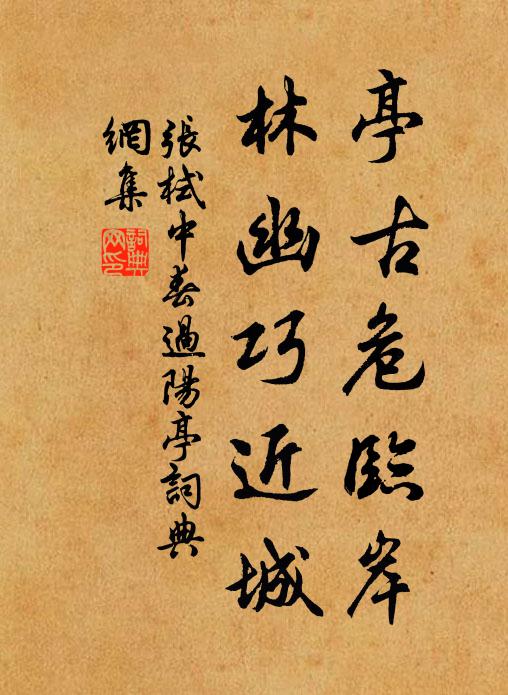 亭古危臨岸
林幽巧近城
張栻中春過陽亭詞典
網集
詞典網印